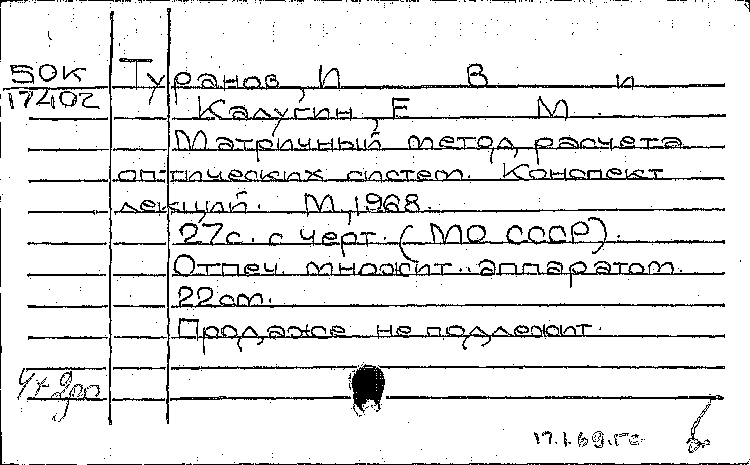 50К Туранов, И В и
17402 Калугин, Е М
Матричный метод расчета
оптических систем. Конспект
лекций. М, 1968.
27с. с черт. (МО СССР).
Отпеч. множит. аппаратом.
22см.
Продаже не подлежит.
17.1.69.